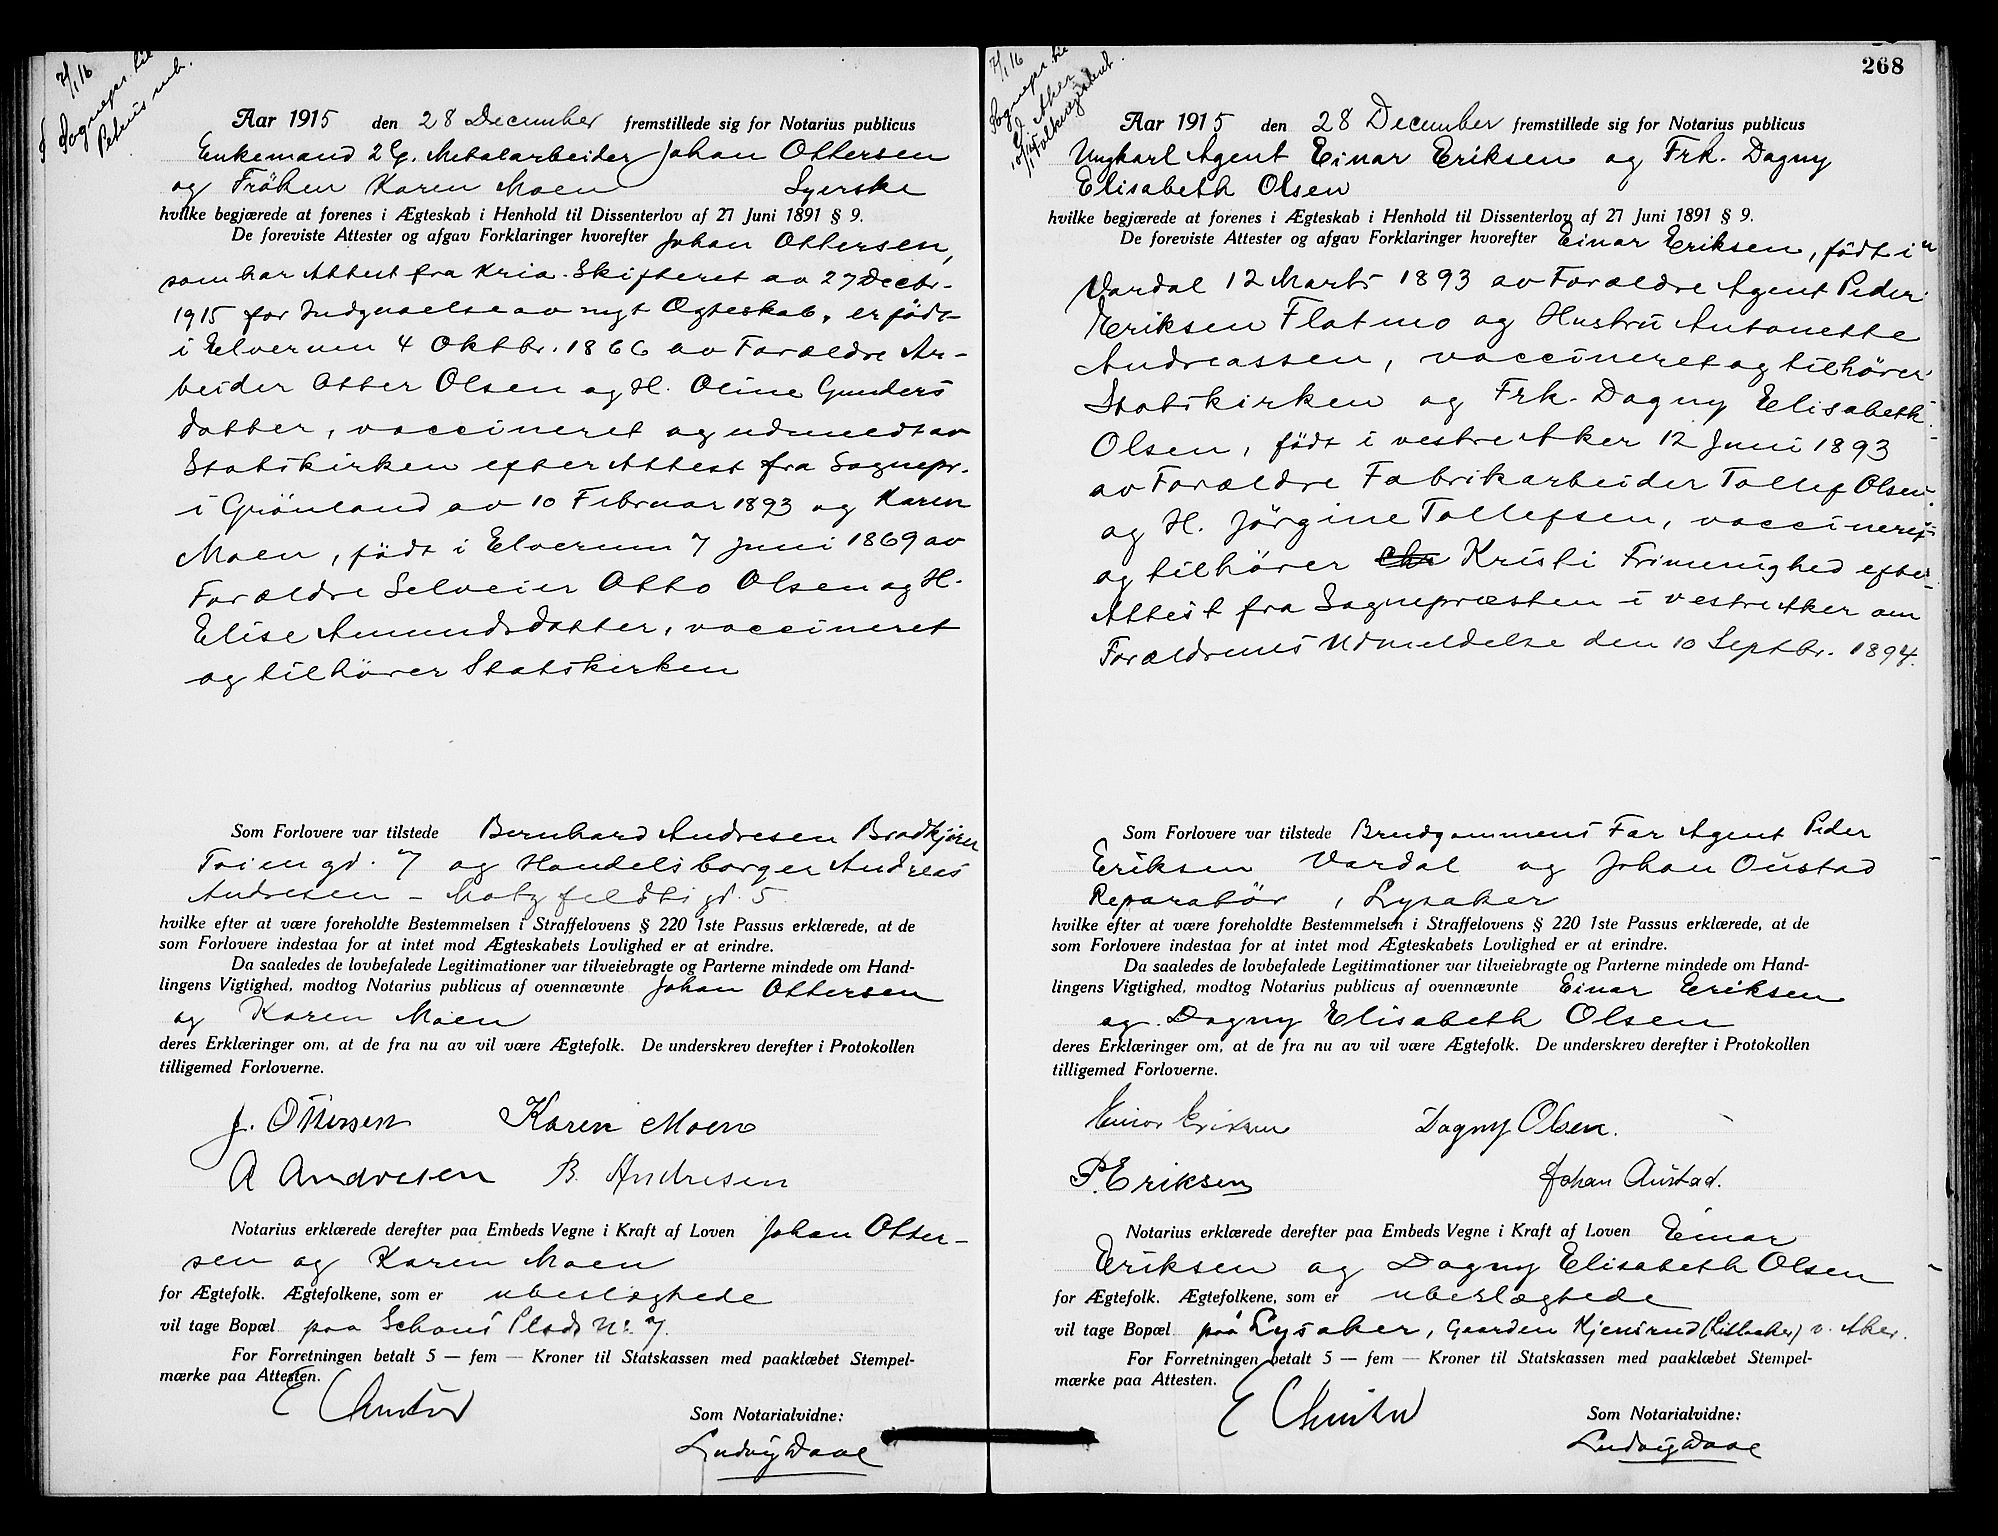 7/1 16
Sognepr. til
Petrus mb.
Aar 1915 den 28 December fremstillede sig for Notarius publicus
Enkemand 2 Eg. Metalarbeider Johan Ottersen
og Frøken Karen Moen Syerske
hvilke begjærede at forenes i Ægteskab i Henhold til Dissenterlov af 27 Juni 1891 § 9.
De foreviste Attester og afgav Forklaringer hvorefter Johan Ottersen,
som har Attest fra Kria. Skifteret av 27 Decbr.
1915 for Indgaaelse av nyt Ægteskab, er født
i Elverum 4 Oktbr. 1866 av Forældre Ar-
beider Otter Olsen og H. Oline Gunders
datter, vaccineret og udmeldt av
Statskirken efter Attest fra Sognepr.
i Grønland av 10 Februar 1893 og Karen
Moen, født i Elverum 7 Juni 1869 av
Forældre Selveier Otto Olsen og H.
Elise Amundsdatter, vaccineret
og tilhører Statskirken
Som Forlovere var tilstede Bernhard Andresen Brødkjører
Tøiengd. 7 og Handelsborger Andreas
Andresen - Motzfeldtsgd. 5.
hvilke efter at være foreholdte Bestemmelsen i Straffelovens § 220 1ste Passus erklærede, at de
som Forlovere indestaa for at intet mod Ægteskabets Lovlighed er at erindre.
Da saaledes de lovbefalede Legitimationer var tilveiebragte og Parterne mindede om Hand-
lingens Vigtighed, modtog Notarius publicus af ovennævnte Johan Ottersen
og Karen Moen
deres Erklæringer om, at de fra nu av vil være Ægtefolk. De underskrev derefter i Protokollen
tilligemed Forloverne.
J. Ottersen Karen Moen
A Andresen B. Andresen
Notarius erklærede derefter paa Embeds Vegne i Kraft af Loven Johan Otter-
sen og Karen Moen
for Ægtefolk. Ægtefolkene, som er ubeslægtede
vil tage Bopæl paa Schous Plads No. 7.
For Forretningen betalt 5 — fem — Kroner til Statskassen med paaklæbet Stempel-
mærke paa Attesten.
E
Som Notarialvidne:
Ludvig Daae
268
7/1 16
Sognepr. til
Aker
Aar 1915 den 28 December fremstillede sig for Notarius publicus
Ungkarl Agent Einar Eriksen og Frk. Dagny
Elisabeth Olsen
hvilke begjærede at forenes i Ægteskab i Henhold til Dissenterlov af 27 Juni 1891 § 9.
De foreviste Attester og afgav Forklaringer hvorefter Einar Eriksen, født i
Vardal 12 Marts 1893 av Forældre Agent Peder
Eriksen Flatmo og Hustru Antonette
Andreassen, vaccineret og tilhører
Statskirken og Frk. Dagny Elisabeth
Olsen, født i vestre Aker 12 Juni 1893
av Forældre Fabrikarbeider Tollef Olsen
og H. Jørgine Tollefsen, vaccineret
og tilhører chr Kristi Frimenighed efter
Attest fra Sognepræsten i vestre Aker om
Forældrenes Udmeldelse den 10 Septbr. 1894.
Som Forlovere var tilstede Brudgommens Far Agent Peder
Eriksen Vardal og Johan Oustad
Reparatør, Lysaker
hvilke efter at være foreholdte Bestemmelsen i Straffelovens § 220 1ste Passus erklærede, at de
som Forlovere indestaa for at intet mod Ægteskabets Lovlighed er at erindre.
Da saaledes de lovbefalede Legitimationer var tilveiebragte og Parterne mindede om Hand-
lingens Vigtighed, modtog Notarius publicus af ovennævnte Einar Eriksen
og Dagny Elisabeth Olsen
deres Erklæringer om, at de fra nu av vil være Ægtefolk. De underskrev derefter i Protokollen
tilligemed Forloverne.
Einar Eriksen Dagny Olsen.
P. Eriksen Johan Austad.
Notarius erklærede derefter paa Embeds Vegne i Kraft af Loven Einar
Eriksen og Dagny Elisabeth Olsen
for Ægtefolk. Ægtefolkene, som er ubeslægtede
vil tage Bopæl paa Lysaker, Gaarden Kjensrud (Lilleaker) v. Aker.
For Forretningen betalt 5 — fem — Kroner til Statskassen med paaklæbet Stempel-
mærke paa Attesten.
E
Som Notarialvidne:
Ludvig Daae